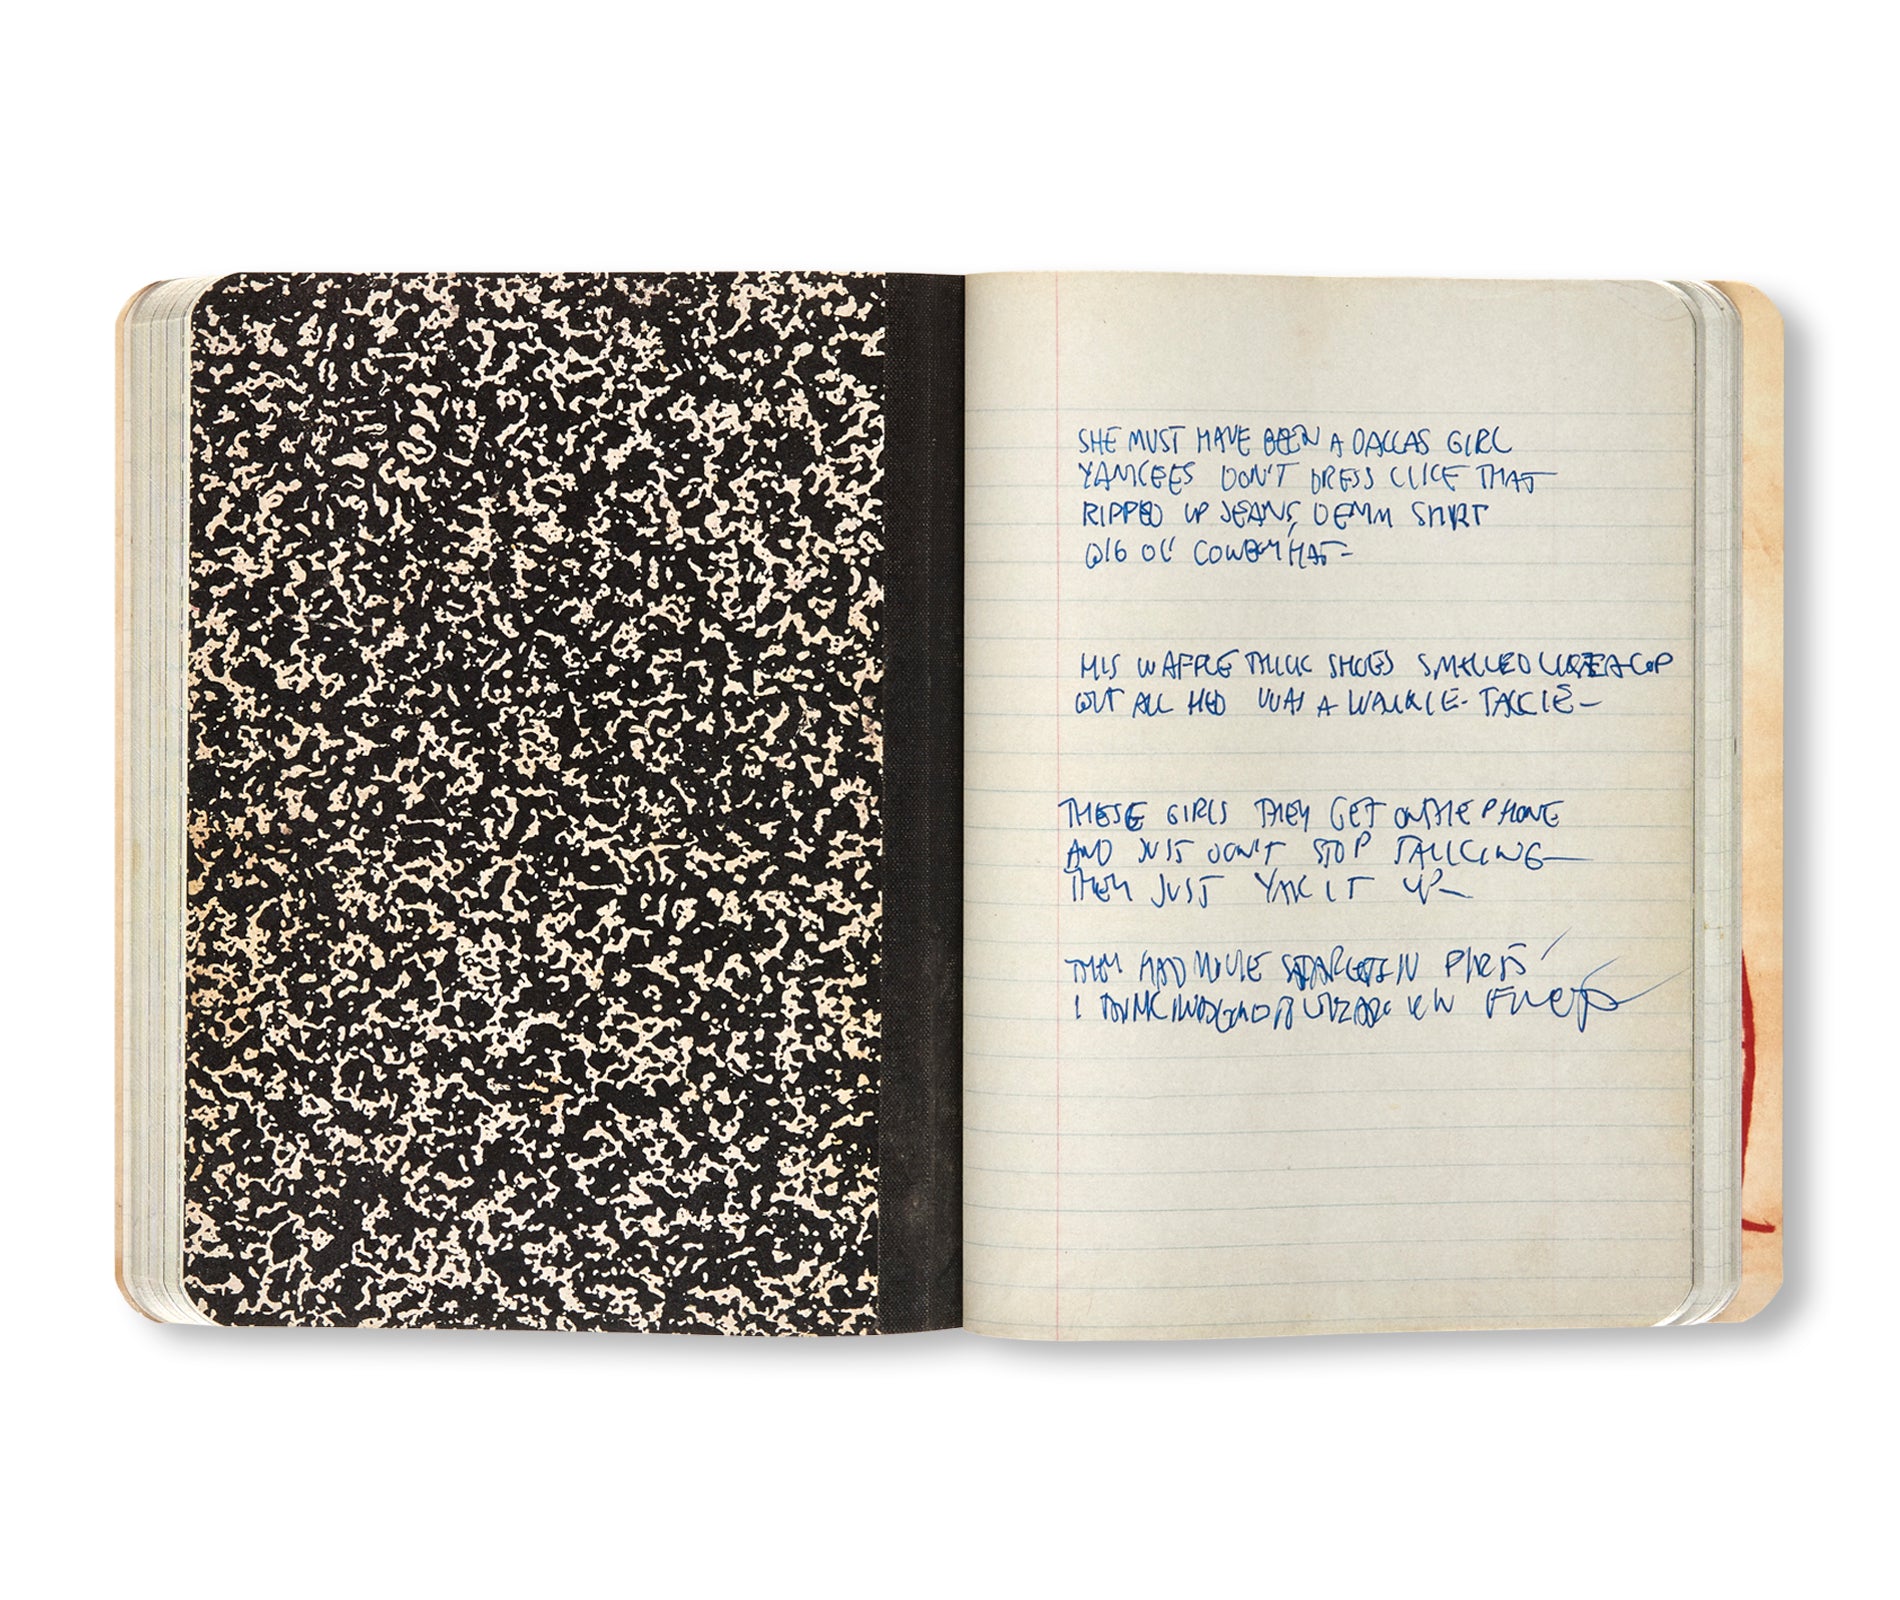 SHE MUST HAVE BEEN A DALLAS GIRL
YANKEES DON'T DRESS LIKE THAT
RIPPED UP JEANS, DENIM SHIRT
BIG OL' COWBOY HAT—
HIS WAFFLE THICK SHOES SMELLED LIKE A COP
BUT ALL HED WAS A WALKIE-TALKIE—
THESE GIRLS THEY GET ON THE PHONE
AND JUST DON'T STOP TALKING—
THEY JUST YAK IT UP—
THEY HAD MOVIE IN PARIS
I THINK